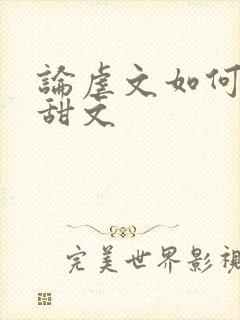 論虐文如何
甜文
完美世界影視